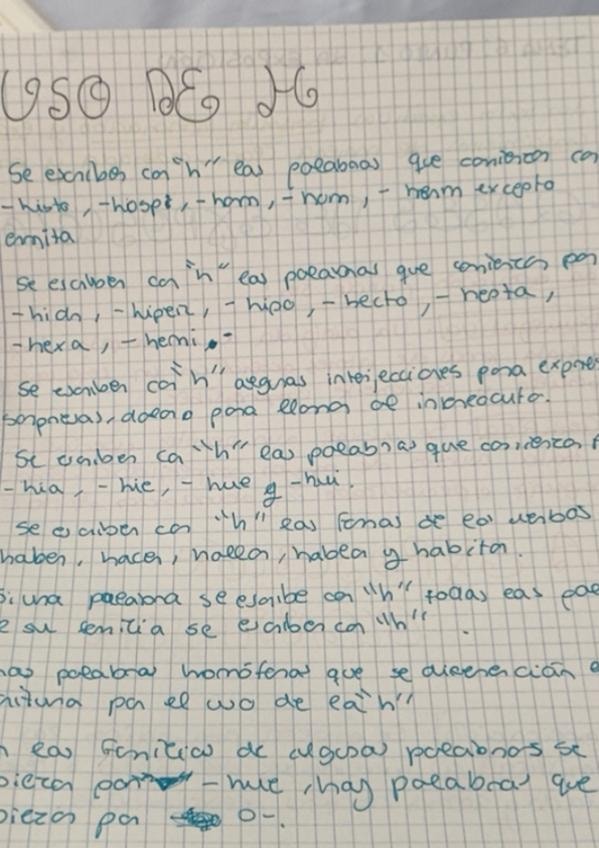 USO DE H
Se escriben con "h" las palabras que comienzan con
-histo, -hosp, -horm, -hum, -herm excepto
ermita
Se escriben con "h" las palabras que comienzan por
-hidr, -hiper, -hipo, -hecto, -hepta,
-hexa, -hemi.
Se escriben con "h" algunas interjecciones para expres
sorpresas, dolor o para llamar al interlocutor.
Se escriben con "h" las palabras que comienzan
-hia, -hie, -hue y -hui.
Se escriben con "h" las formas de los verbos
haber, hacer, hallar, hablar y habitar.
Si una palabra se escribe con "h" todas las pa
e su familia se escriben con "h".
has palabras homófonas que se diferencian
ritura por el uso de la "h"
n las familias de algunas palabras se
piezan por -hue, hay palabras que
piezan por o-.